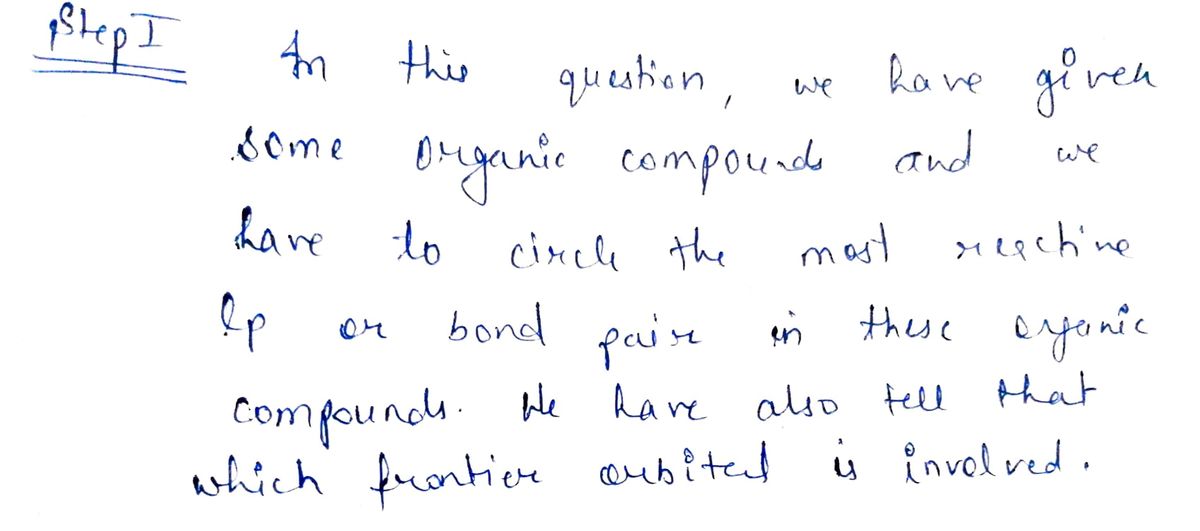 Step I In this question, we have given
some organic compounds and we
have to circle the most reactive
lp or bond pair in these organic
compounds. We have also tell that
which frontier orbital is involved.